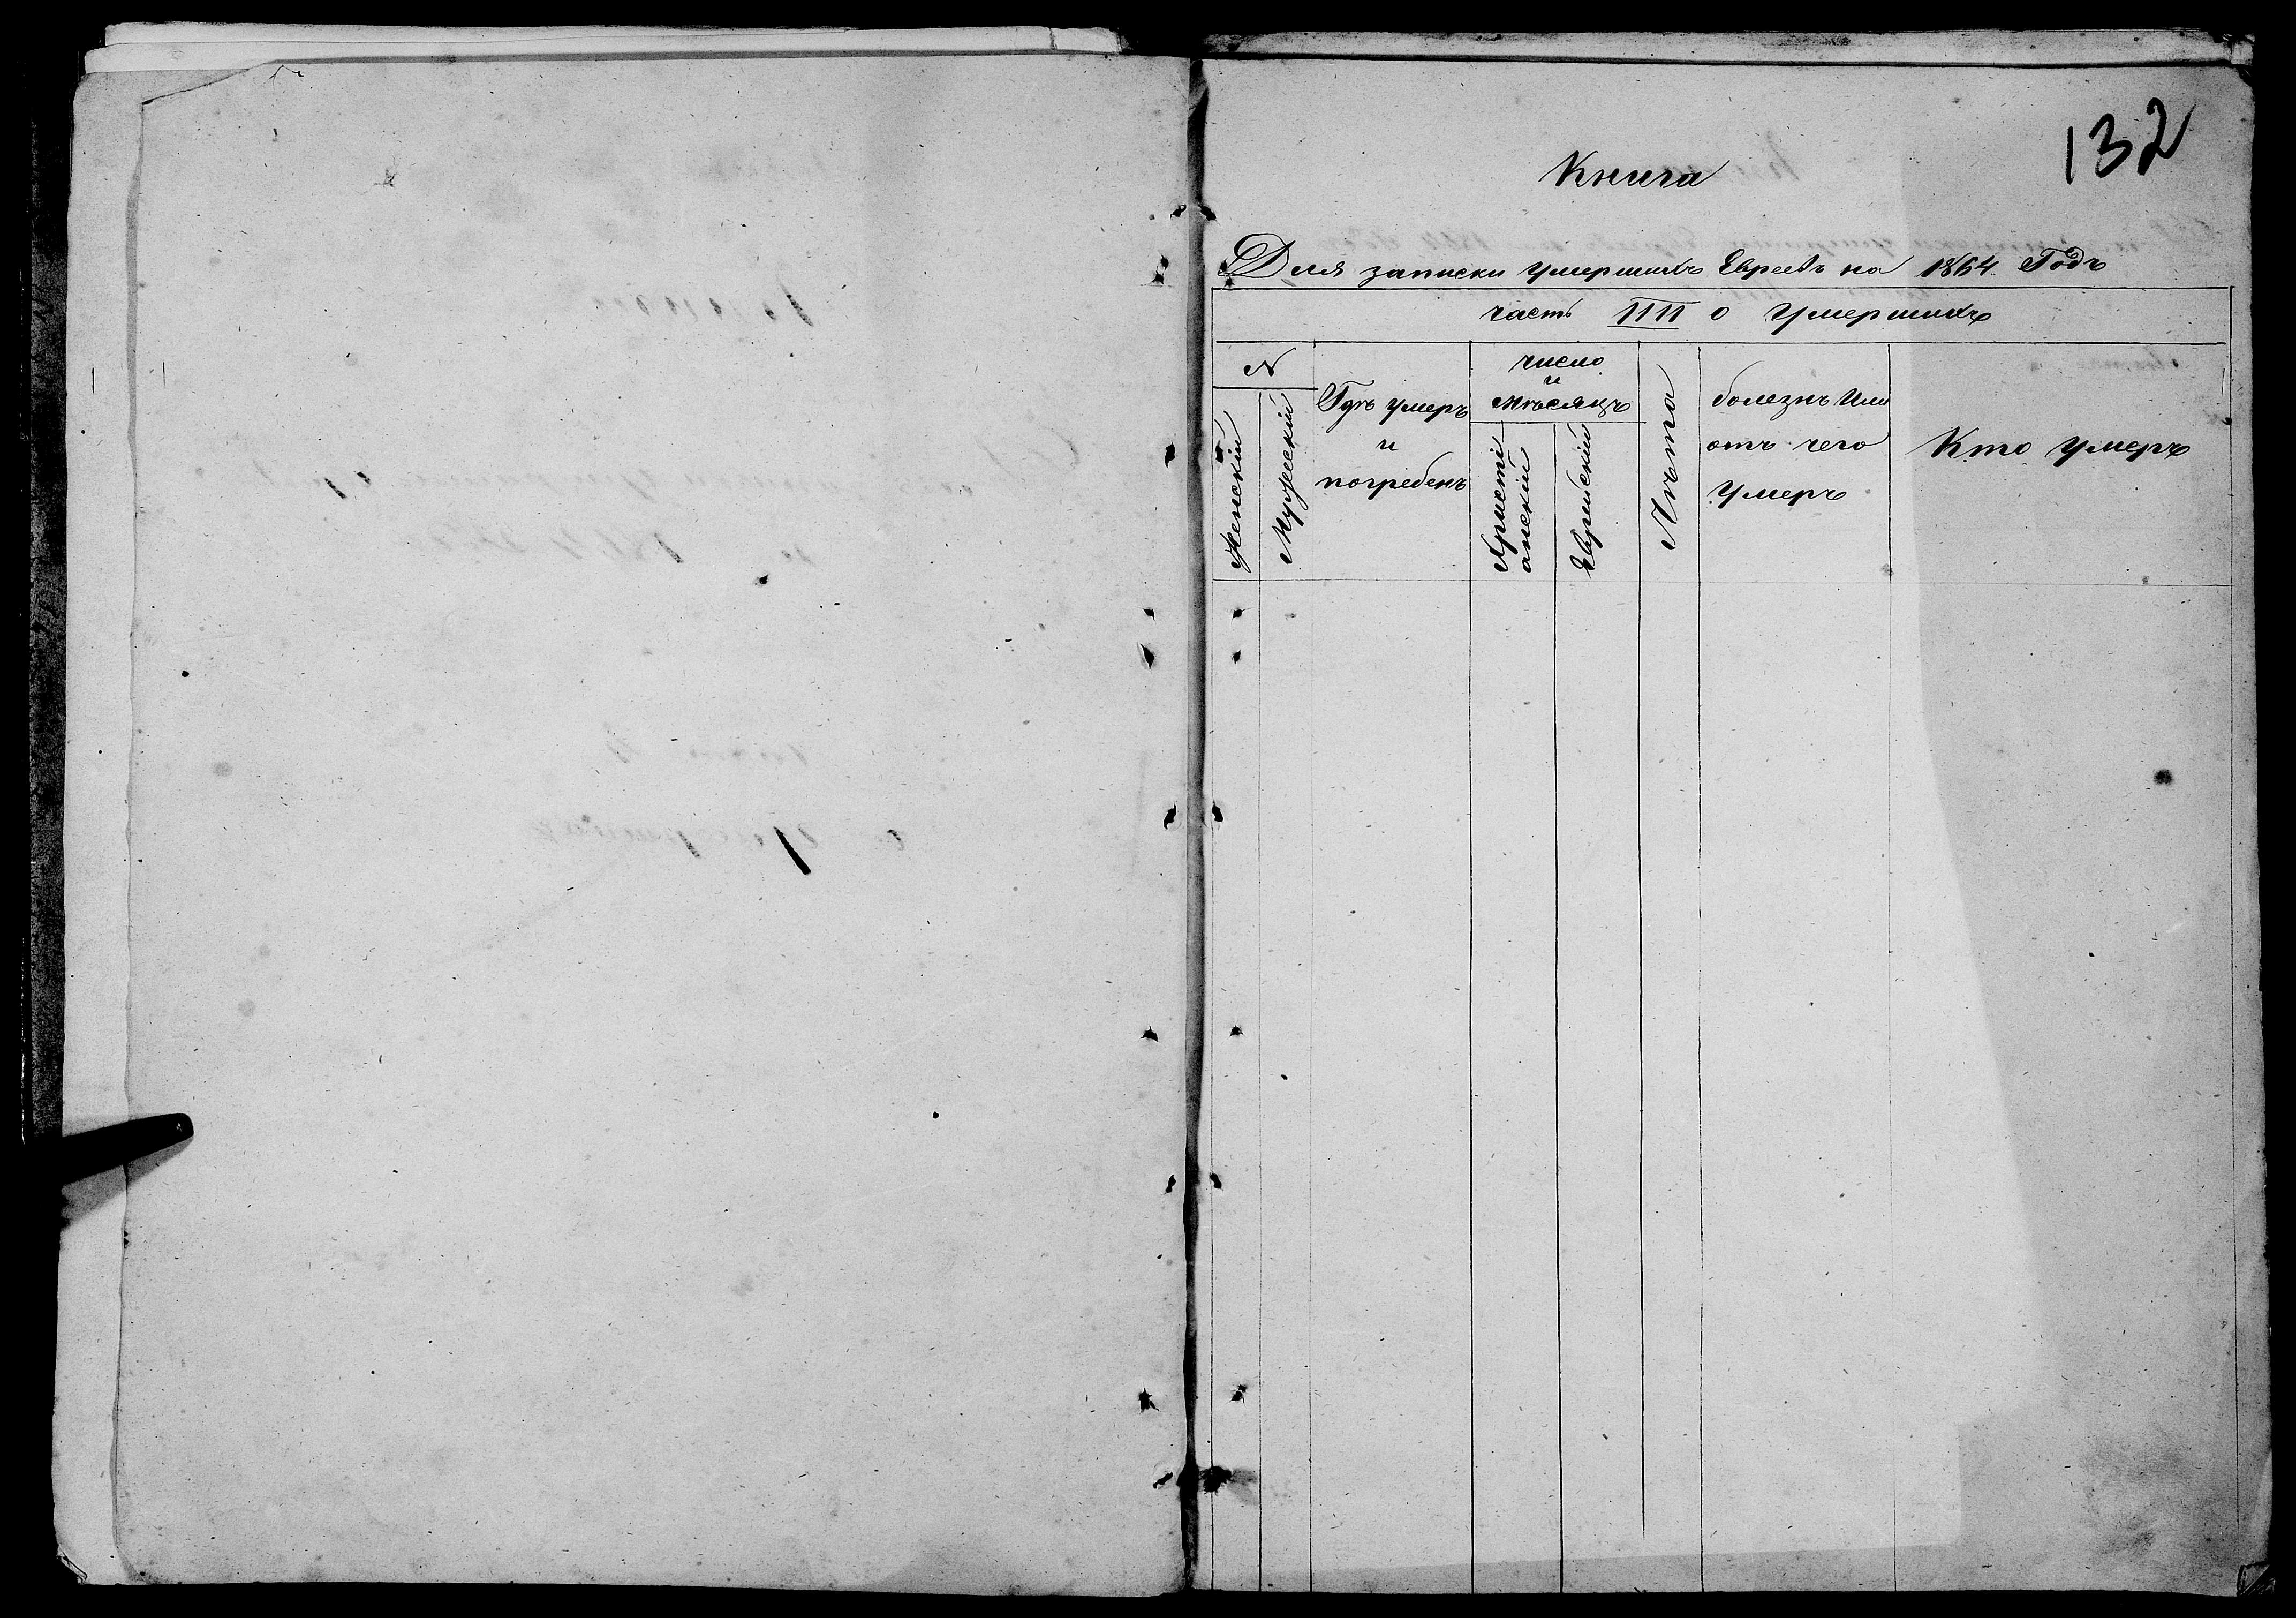 132
Книга
Для записки умершихъ Евреевъ на 1864 Годъ
часть IIII о умершихъ
№
Женскій
Мужескій
Гдѣ умеръ
и
погребенъ
число
и
мѣсяцъ
Христі
анскій
Еврейскій
Лѣта
болезнь Или
отъ чего
умеръ
Кто умеръ